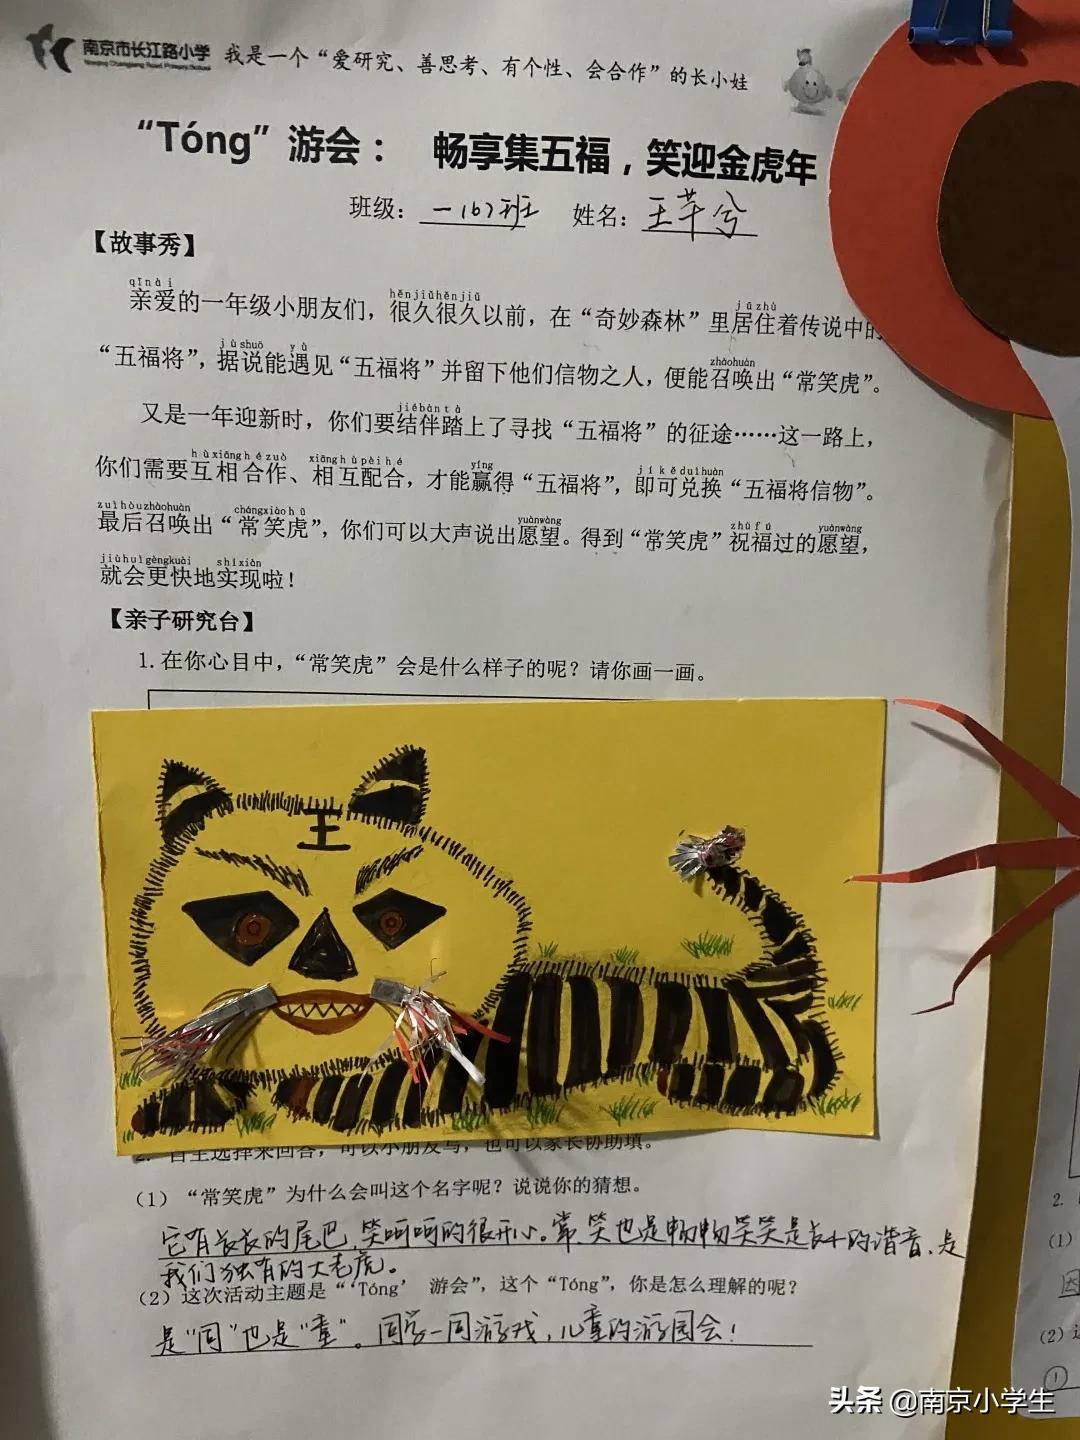 南京市长江路小学 我是一个“爱研究、善思考、有个性、会合作”的长小娃
Nanjing Changjiang Road Primary School
“Tóng”游会： 畅享集五福，笑迎金虎年
班级：一(6)班 姓名：王芊兮
【故事秀】
qīn ài hěn jiǔ hěn jiǔ jū zhù
亲爱的一年级小朋友们，很久很久以前，在“奇妙森林”里居住着传说中的
jù shuō yù zhào huàn
“五福将”，据说能遇见“五福将”并留下他们信物之人，便能召唤出“常笑虎”。
jié bàn tà
又是一年迎新时，你们要结伴踏上了寻找“五福将”的征途……这一路上，
hù xiāng hé zuò xiāng hù pèi hé yíng jí kě duì huàn
你们需要互相合作、相互配合，才能赢得“五福将”，即可兑换“五福将信物”。
zuì hòu zhào huàn cháng xiào hǔ yuàn wàng zhù fú yuàn wàng
最后召唤出“常笑虎”，你们可以大声说出愿望。得到“常笑虎”祝福过的愿望，
jiù huì gèng kuài shí xiàn
就会更快地实现啦！
【亲子研究台】
1.在你心目中，“常笑虎”会是什么样子的呢？请你画一画。
王
2. 自主选择来回答，可以小朋友写，也可以家长协助填。
（1）“常笑虎”为什么会叫这个名字呢？说说你的猜想。
它有长长的尾巴，笑呵呵的很开心。常笑也是畅畅笑笑是长小的谐音，是
我们独有的大老虎。
（2）这次活动主题是“‘Tóng’ 游会”，这个“Tóng”，你是怎么理解的呢？
是“同”也是“童”。同学一同游戏，儿童的游园会！
2.
(1)
因
(2)
①
头条 @南京小学生